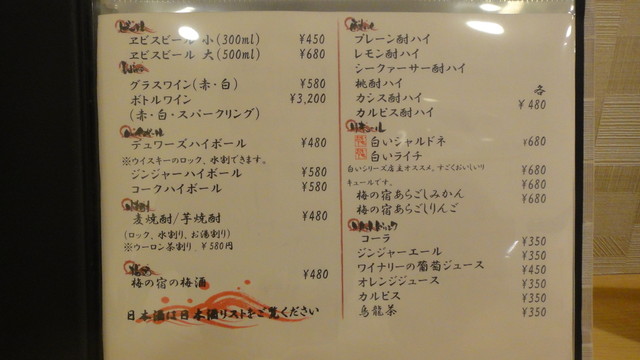 ヱビスビール 小(300ml) ¥450
ヱビスビール 大(500ml) ¥680
グラスワイン(赤・白) ¥580
ボトルワイン ¥3,200
(赤・白・スパークリング)
デュワーズハイボール ¥480
※ウイスキーのロック、水割できます。
ジンジャーハイボール ¥580
コークハイボール ¥580
麦焼酎/芋焼酎 ¥480
(ロック、水割り、お湯割り)
※ウーロン茶割り ¥580円
梅の宿の梅酒 ¥480
日本酒は日本酒リストをご覧ください
プレーン酎ハイ
レモン酎ハイ
シークァーサー酎ハイ
桃酎ハイ 各
カシス酎ハイ ¥480
カルピス酎ハイ
白いシャルドネ ¥680
白いライチ
白いシリーズ店主オススメ、すごくおいしいリ ¥680
キュールです。
梅の宿あらごしみかん ¥680
梅の宿あらごしりんご ¥680
コーラ ¥350
ジンジャーエール ¥350
ワイナリーの葡萄ジュース ¥450
オレンジジュース ¥350
カルピス ¥350
烏龍茶 ¥350